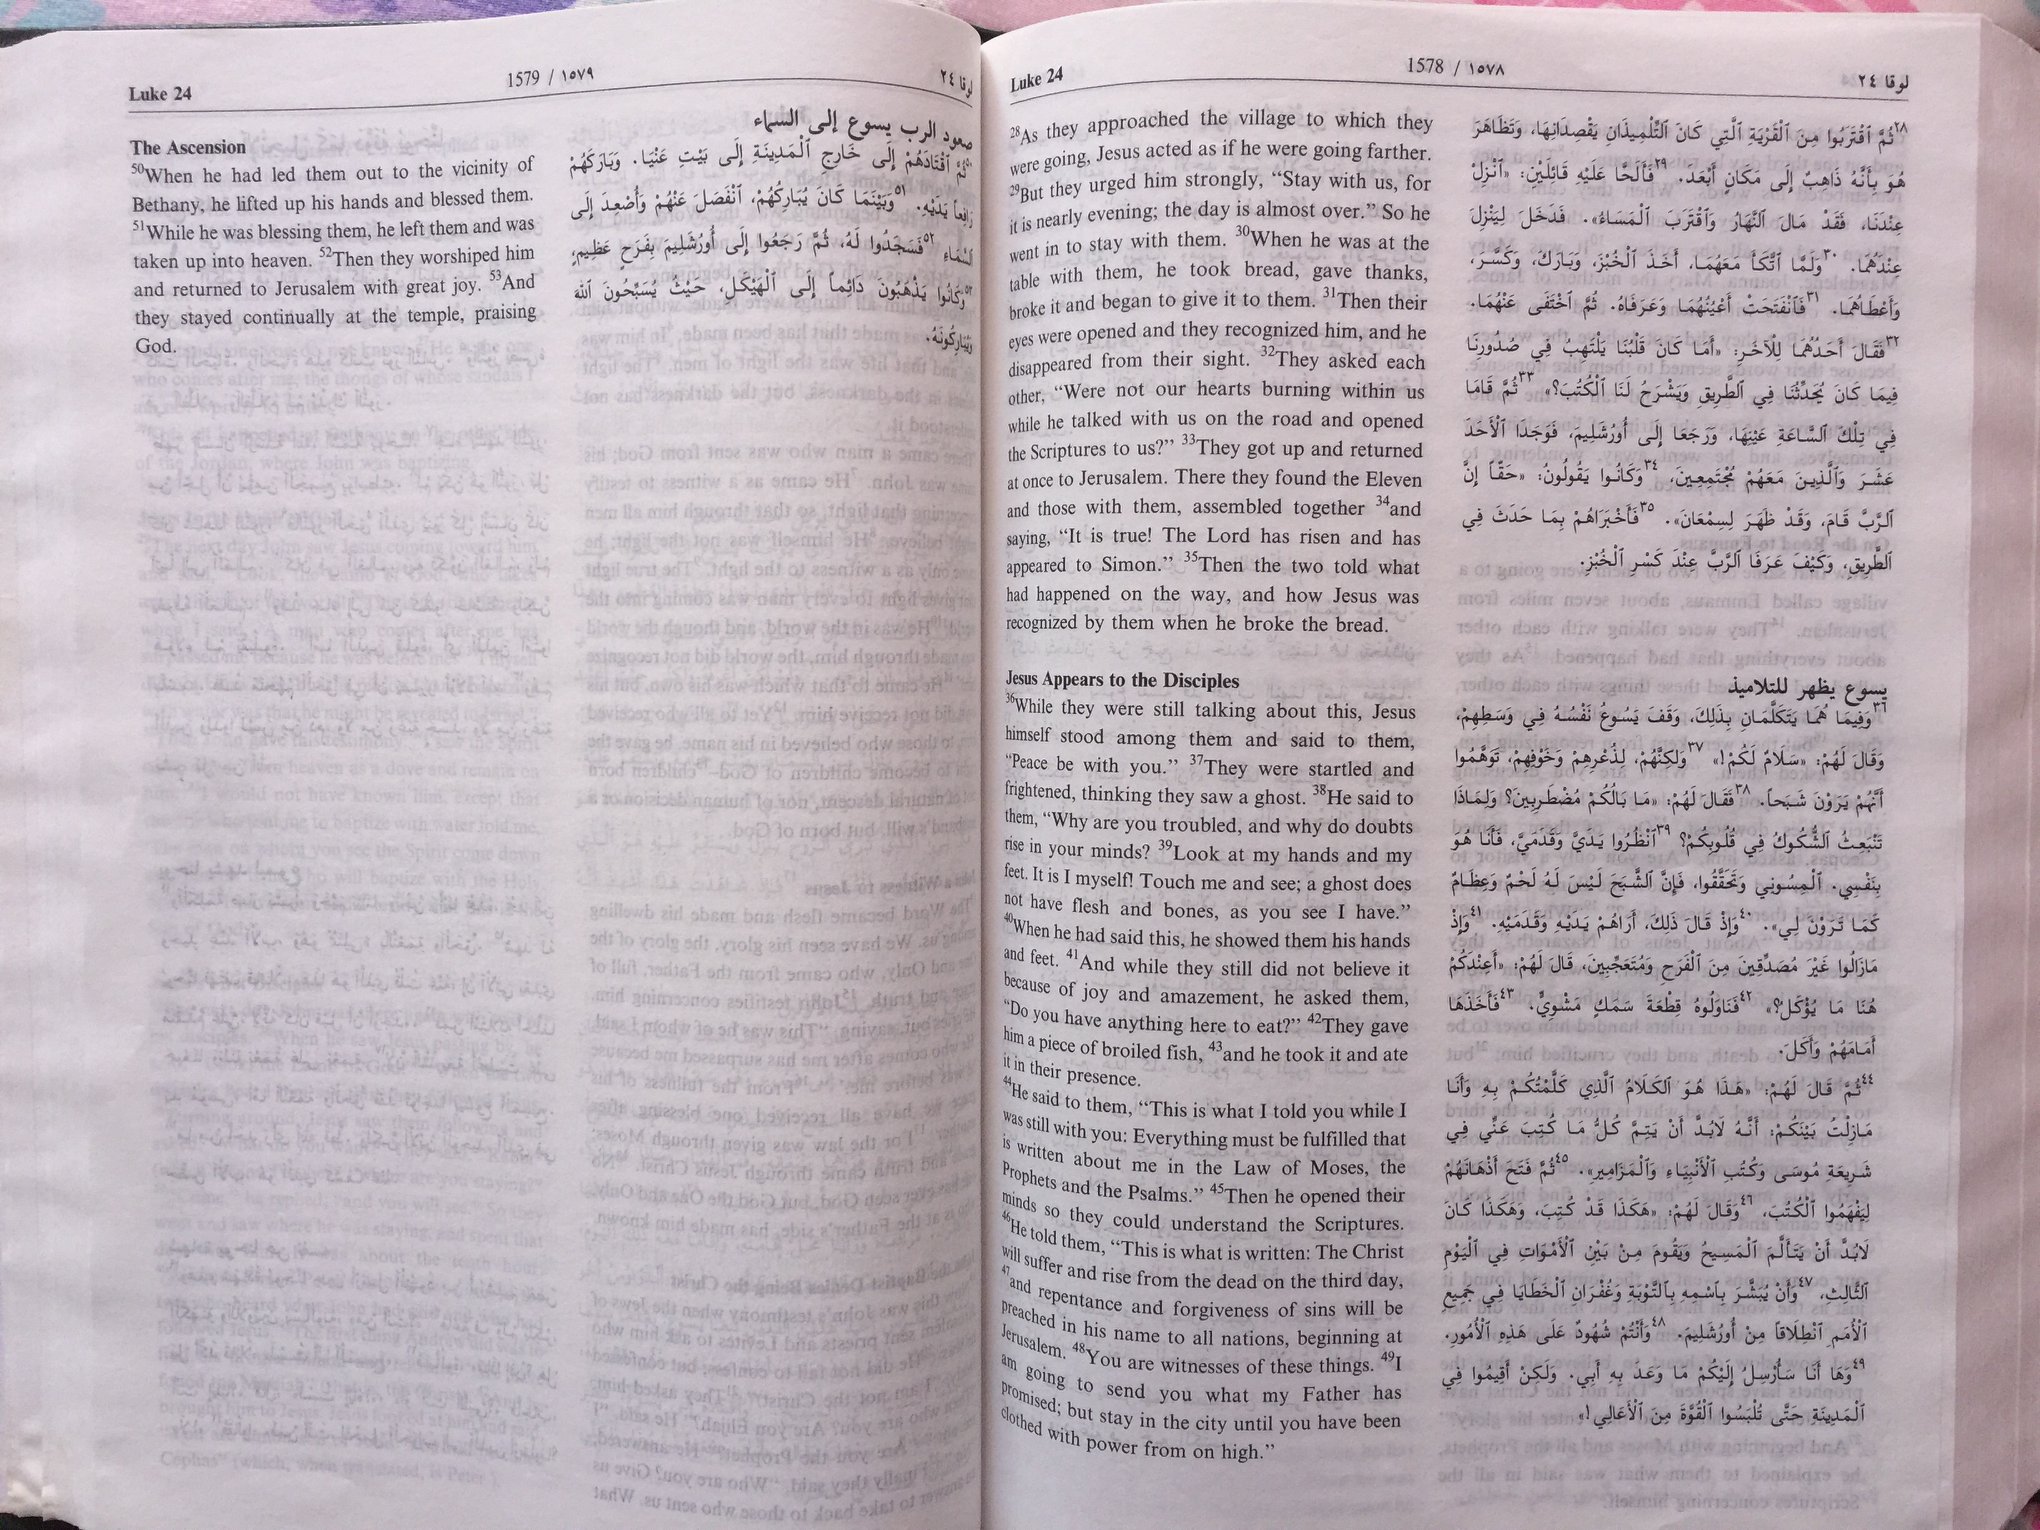 Luke 24
1578 / ١٥٧٨
لوقا ٢٤
28As they approached the village to which they
were going, Jesus acted as if he were going farther.
29But they urged him strongly, “Stay with us, for
it is nearly evening; the day is almost over.” So he
went in to stay with them. 30When he was at the
table with them, he took bread, gave thanks,
broke it and began to give it to them. 31Then their
eyes were opened and they recognized him, and he
disappeared from their sight. 32They asked each
other, “Were not our hearts burning within us
while he talked with us on the road and opened
the Scriptures to us?” 33They got up and returned
at once to Jerusalem. There they found the Eleven
and those with them, assembled together 34and
saying, “It is true! The Lord has risen and has
appeared to Simon.” 35Then the two told what
had happened on the way, and how Jesus was
recognized by them when he broke the bread.
Jesus Appears to the Disciples
36While they were still talking about this, Jesus
himself stood among them and said to them,
“Peace be with you.” 37They were startled and
frightened, thinking they saw a ghost. 38He said to
them, “Why are you troubled, and why do doubts
rise in your minds? 39Look at my hands and my
feet. It is I myself! Touch me and see; a ghost does
not have flesh and bones, as you see I have.”
40When he had said this, he showed them his hands
and feet. 41And while they still did not believe it
because of joy and amazement, he asked them,
“Do you have anything here to eat?” 42They gave
him a piece of broiled fish, 43and he took it and ate
it in their presence.
44He said to them, “This is what I told you while I
was still with you: Everything must be fulfilled that
is written about me in the Law of Moses, the
Prophets and the Psalms.” 45Then he opened their
minds so they could understand the Scriptures.
46He told them, “This is what is written: The Christ
will suffer and rise from the dead on the third day,
47and repentance and forgiveness of sins will be
preached in his name to all nations, beginning at
Jerusalem. 48You are witnesses of these things. 49I
am going to send you what my Father has
promised; but stay in the city until you have been
clothed with power from on high.”
٢٨ثُمَّ ٱقْتَرَبُوا مِنَ ٱلْقَرْيَةِ ٱلَّتِي كَانَ ٱلتِّلْمِيذَانِ يَقْصِدَانِهَا، وَتَظَاهَرَ
هُوَ بِأَنَّهُ ذَاهِبٌ إِلَى مَكَانٍ أَبْعَدَ. ٢٩فَأَلَحَّا عَلَيْهِ قَائِلَيْنِ: «ٱنْزِلْ
عِنْدَنَا، فَقَدْ مَالَ ٱلنَّهَارُ وَٱقْتَرَبَ ٱلْمَسَاءُ». فَدَخَلَ لِيَنْزِلَ
عِنْدَهُمَا. ٣٠وَلَمَّا ٱتَّكَأَ مَعَهُمَا، أَخَذَ ٱلْخُبْزَ، وَبَارَكَ، وَكَسَّرَ،
وَأَعْطَاهُمَا. ٣١فَٱنْفَتَحَتْ أَعْيُنُهُمَا وَعَرَفَاهُ. ثُمَّ ٱخْتَفَى عَنْهُمَا.
٣٢فَقَالَ أَحَدُهُمَا لِلْآخَرِ: «أَمَا كَانَ قَلْبُنَا يَلْتَهِبُ فِي صُدُورِنَا
فِيمَا كَانَ يُحَدِّثُنَا فِي ٱلطَّرِيقِ وَيَشْرَحُ لَنَا ٱلْكُتُبَ؟» ٣٣ثُمَّ قَامَا
فِي تِلْكَ ٱلسَّاعَةِ عَيْنِهَا، وَرَجَعَا إِلَى أُورُشَلِيمَ، فَوَجَدَا ٱلْأَحَدَ
عَشَرَ وَٱلَّذِينَ مَعَهُمْ مُجْتَمِعِينَ، ٣٤وَكَانُوا يَقُولُونَ: «حَقّاً إِنَّ
ٱلرَّبَّ قَامَ، وَقَدْ ظَهَرَ لِسِمْعَانَ». ٣٥فَأَخْبَرَاهُمْ بِمَا حَدَثَ فِي
ٱلطَّرِيقِ، وَكَيْفَ عَرَفَا ٱلرَّبَّ عِنْدَ كَسْرِ ٱلْخُبْزِ.
يسوع يظهر للتلاميذ
٣٦وَفِيمَا هُمَا يَتَكَلَّمَانِ بِذَلِكَ، وَقَفَ يَسُوعُ نَفْسُهُ فِي وَسَطِهِمْ،
وَقَالَ لَهُمْ: «سَلَامٌ لَكُمْ!» ٣٧وَلكِنَّهُمْ، لِذُعْرِهِمْ وَخَوْفِهِمْ، تَوَهَّمُوا
أَنَّهُمْ يَرَوْنَ شَبَحاً. ٣٨فَقَالَ لَهُمْ: «مَا بَالُكُمْ مُضْطَرِبِينَ؟ وَلِمَاذَا
تَنْبَعِثُ ٱلشُّكُوكُ فِي قُلُوبِكُمْ؟ ٣٩ٱنْظُرُوا يَدَيَّ وَقَدَمَيَّ، فَأَنَا هُوَ
بِنَفْسِي. ٱلْمِسُونِي وَتَحَقَّقُوا، فَإِنَّ ٱلشَّبَحَ لَيْسَ لَهُ لَحْمٌ وَعِظَامٌ
كَمَا تَرَوْنَ لِي». ٤٠وَإِذْ قَالَ ذَلِكَ، أَرَاهُمْ يَدَيْهِ وَقَدَمَيْهِ. ٤١وَإِذْ
مَازَالُوا غَيْرَ مُصَدِّقِينَ مِنَ ٱلْفَرَحِ وَمُتَعَجِّبِينَ، قَالَ لَهُمْ: «أَعِنْدَكُمْ
هُنَا مَا يُؤْكَلُ؟» ٤٢فَنَاوَلُوهُ قِطْعَةَ سَمَكٍ مَشْوِيٍّ. ٤٣فَأَخَذَهَا
أَمَامَهُمْ وَأَكَلَ.
٤٤ثُمَّ قَالَ لَهُمْ: «هَذَا هُوَ ٱلْكَلَامُ ٱلَّذِي كَلَّمْتُكُمْ بِهِ وَأَنَا
مَازِلْتُ بَيْنَكُمْ: أَنَّهُ لَابُدَّ أَنْ يَتِمَّ كُلُّ مَا كُتِبَ عَنِّي فِي
شَرِيعَةِ مُوسَى وَكُتُبِ ٱلْأَنْبِيَاءِ وَٱلْمَزَامِيرِ». ٤٥ثُمَّ فَتَحَ أَذْهَانَهُمْ
لِيَفْهَمُوا ٱلْكُتُبَ، ٤٦وَقَالَ لَهُمْ: «هَكَذَا قَدْ كُتِبَ، وَهَكَذَا كَانَ
لَابُدَّ أَنْ يَتَأَلَّمَ ٱلْمَسِيحُ وَيَقُومَ مِنْ بَيْنِ ٱلْأَمْوَاتِ فِي ٱلْيَوْمِ
ٱلثَّالِثِ، ٤٧وَأَنْ يُبَشَّرَ بِٱسْمِهِ بِٱلتَّوْبَةِ وَغُفْرَانِ ٱلْخَطَايَا فِي جَمِيعِ
ٱلْأُمَمِ ٱنْطِلَاقاً مِنْ أُورُشَلِيمَ. ٤٨وَأَنْتُمْ شُهُودٌ عَلَى هَذِهِ ٱلْأُمُورِ.
٤٩وَهَا أَنَا سَأُرْسِلُ إِلَيْكُمْ مَا وَعَدَ بِهِ أَبِي. وَلَكِنْ أَقِيمُوا فِي
ٱلْمَدِينَةِ حَتَّى تُلْبَسُوا ٱلْقُوَّةَ مِنَ ٱلْأَعَالِي!»
Luke 24
1579 / ١٥٧٩
لوقا ٢٤
The Ascension
50When he had led them out to the vicinity of
Bethany, he lifted up his hands and blessed them.
51While he was blessing them, he left them and was
taken up into heaven. 52Then they worshiped him
and returned to Jerusalem with great joy. 53And
they stayed continually at the temple, praising
God.
صعود الرب يسوع إلى السماء
٥٠ثُمَّ ٱقْتَادَهُمْ إِلَى خَارِجِ ٱلْمَدِينَةِ إِلَى بَيْتِ عَنْيَا. وَبَارَكَهُمْ
رَافِعاً يَدَيْهِ. ٥١وَبَيْنَمَا كَانَ يُبَارِكُهُمْ، ٱنْفَصَلَ عَنْهُمْ وَأُصْعِدَ إِلَى
ٱلسَّمَاءِ ٥٢فَسَجَدُوا لَهُ، ثُمَّ رَجَعُوا إِلَى أُورُشَلِيمَ بِفَرَحٍ عَظِيمٍ،
٥٣وَكَانُوا يَذْهَبُونَ دَائِماً إِلَى ٱلْهَيْكَلِ، حَيْثُ يُسَبِّحُونَ ٱللهَ
وَيُبَارِكُونَهُ.